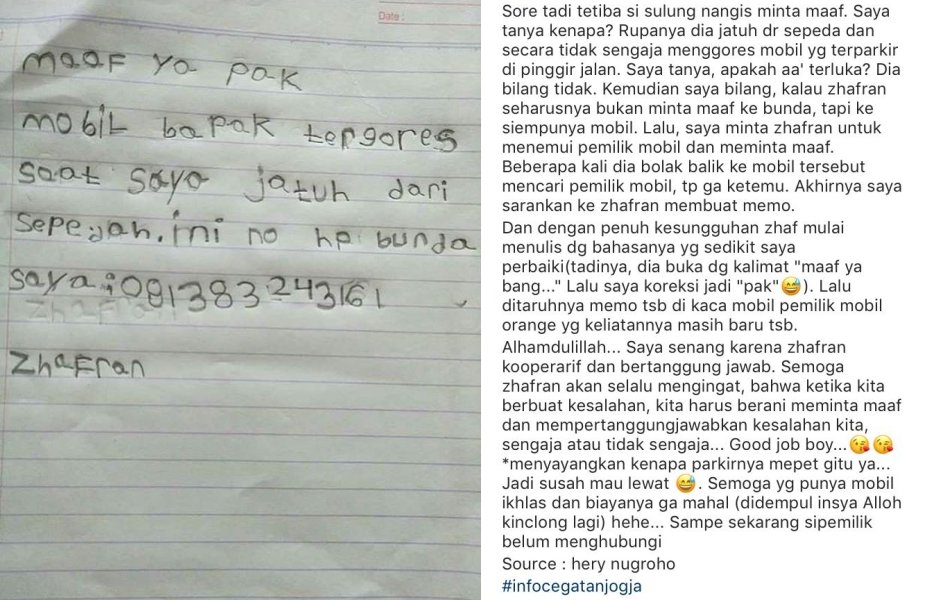 Date :
maaf ya pak
mobil bapak tergores
saat saya jatuh dari
sepedah. ini no hp bunda
saya : 081383243161
Zhafran
Zhafran
Sore tadi tetiba si sulung nangis minta maaf. Saya
tanya kenapa? Rupanya dia jatuh dr sepeda dan
secara tidak sengaja menggores mobil yg terparkir
di pinggir jalan. Saya tanya, apakah aa' terluka? Dia
bilang tidak. Kemudian saya bilang, kalau zhafran
seharusnya bukan minta maaf ke bunda, tapi ke
siempunya mobil. Lalu, saya minta zhafran untuk
menemui pemilik mobil dan meminta maaf.
Beberapa kali dia bolak balik ke mobil tersebut
mencari pemilik mobil, tp ga ketemu. Akhirnya saya
sarankan ke zhafran membuat memo.
Dan dengan penuh kesungguhan zhaf mulai
menulis dg bahasanya yg sedikit saya
perbaiki(tadinya, dia buka dg kalimat "maaf ya
bang..." Lalu saya koreksi jadi "pak"😅). Lalu
ditaruhnya memo tsb di kaca mobil pemilik mobil
orange yg keliatannya masih baru tsb.
Alhamdulillah... Saya senang karena zhafran
kooperarif dan bertanggung jawab. Semoga
zhafran akan selalu mengingat, bahwa ketika kita
berbuat kesalahan, kita harus berani meminta maaf
dan mempertanggungjawabkan kesalahan kita,
sengaja atau tidak sengaja... Good job boy...😘😘
*menyayangkan kenapa parkirnya mepet gitu ya...
Jadi susah mau lewat 😅. Semoga yg punya mobil
ikhlas dan biayanya ga mahal (didempul insya Alloh
kinclong lagi) hehe... Sampe sekarang sipemilik
belum menghubungi
Source : hery nugroho
#infocegatanjogja